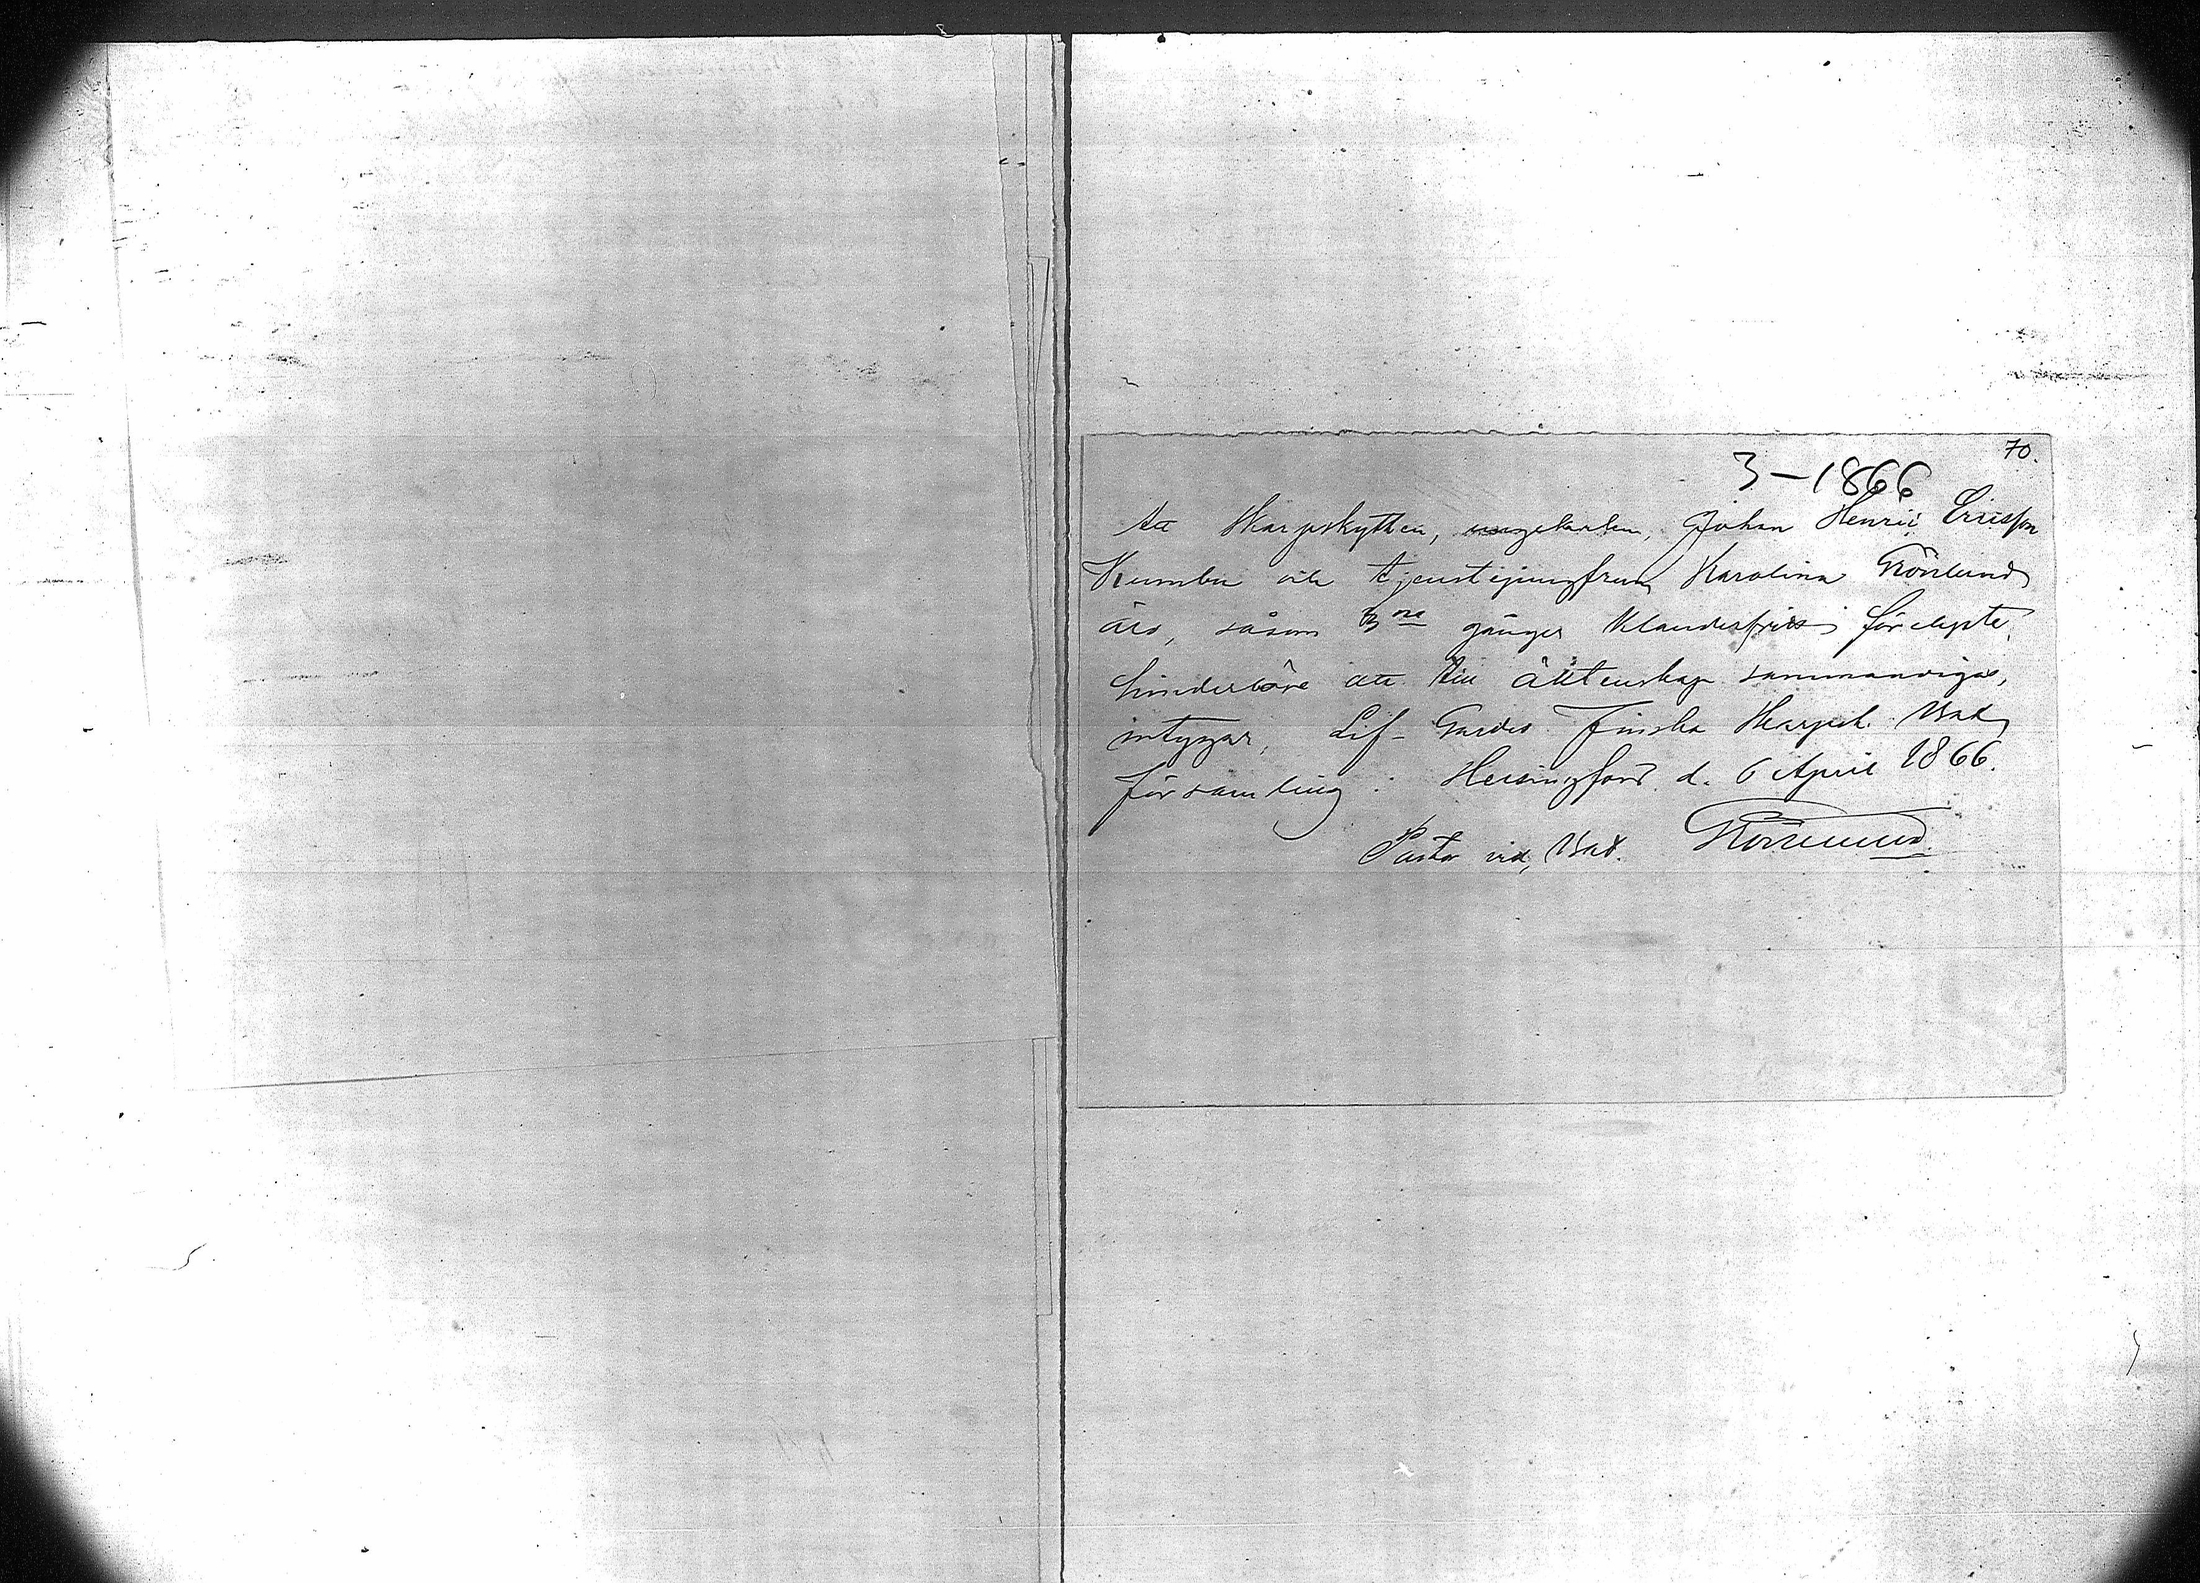 70.
3-1866
Att Skarpskytten, ungkarlen, Johan Henric Ericsson
Kumbu och tjenstejungfrun Karolina Grönlund
äro, såsom 3ne gånger klanderfritt förelyste,
hinderlöse att till äktenskap sammanvigas,
intygar, Lif-Gardes Finska Skarpsk. Bat.
församling. Helsingfors d. 6 April 1866.
Pastor vid Bat.